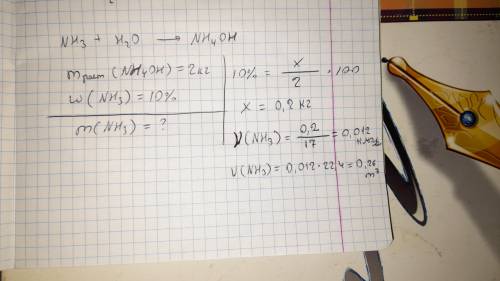 NH3 + H2O → NH4OH
mраст (NH4OH) = 2кг
ω(NH3) = 10%
m(NH3) = ?
10% = x/2 · 100
x = 0,2 кг
ν(NH3) = 0,2/17 = 0,012 кмоль
V(NH3) = 0,012·22,4 = 0,26 m³